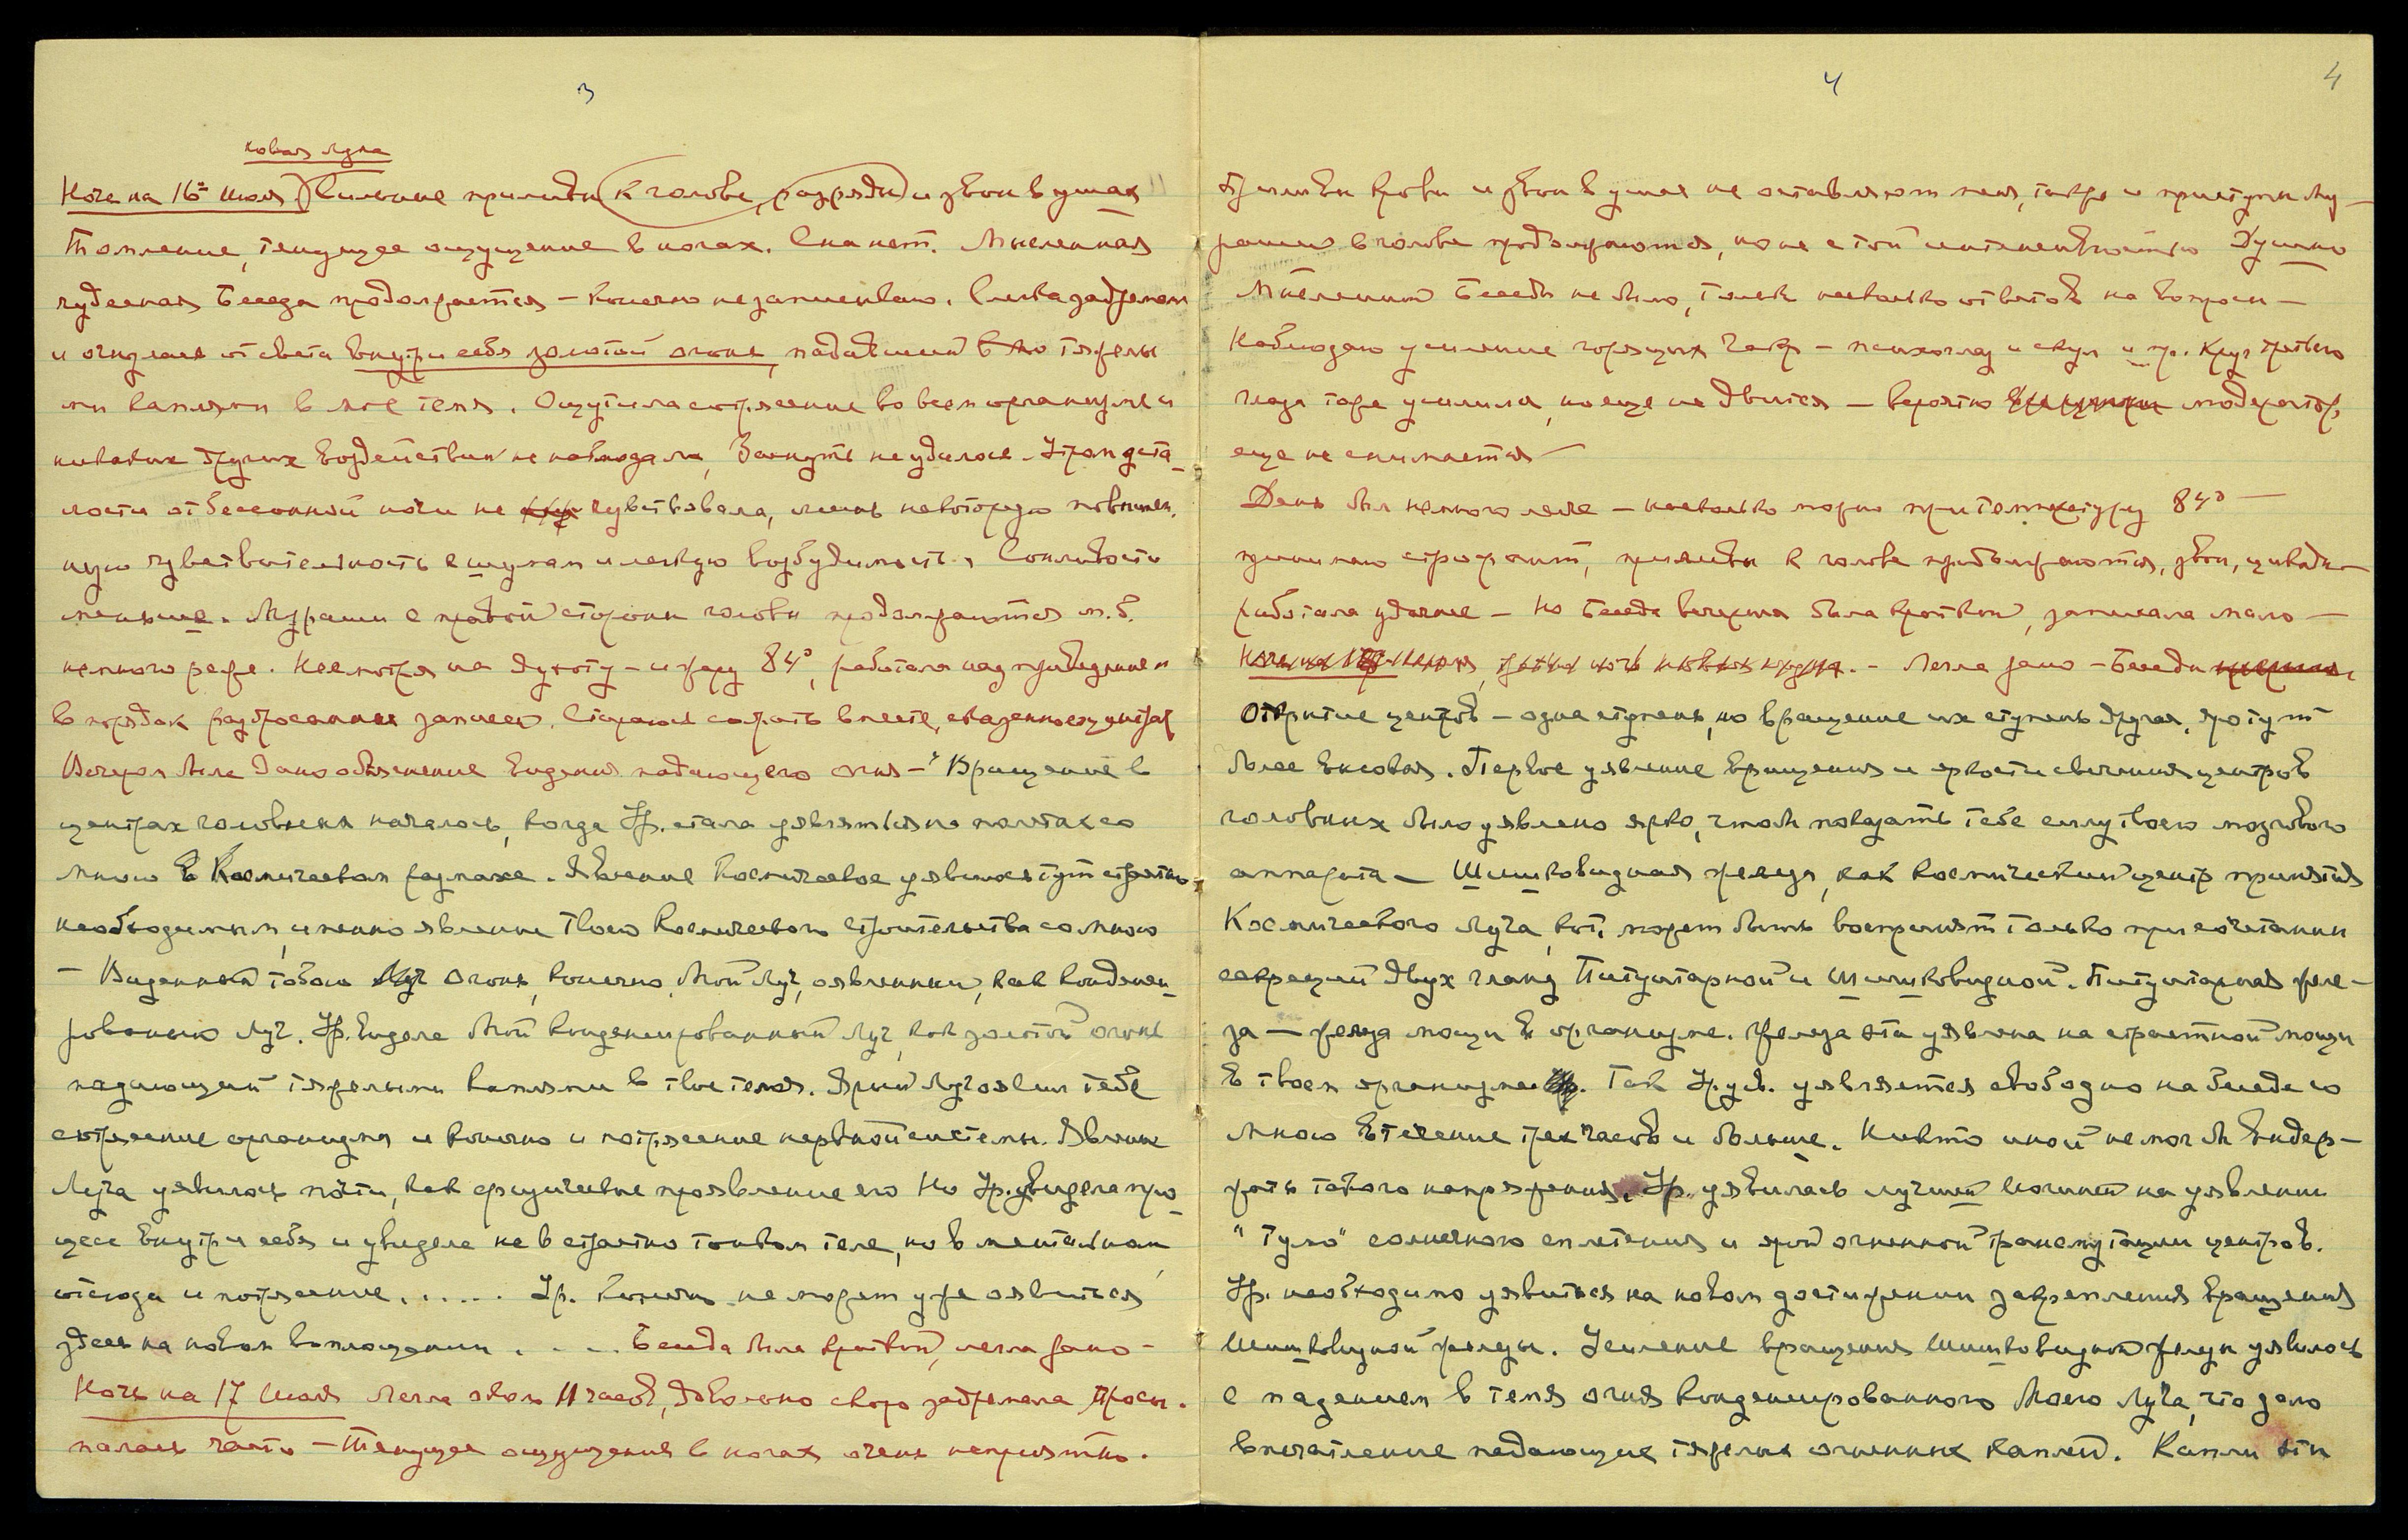 3
новая луна
Ночь на 16ое Июля) Сильные приливы (к голове, разряды) и звон в ушах
Томление, тянущее ощущение в ногах. Сна нет. Мысленная
чудесная Беседа продолжается – конечно не записываю. Слегка задремала
и очнулась от света внутри себя золотой огонь, падавший тяжелы
ми каплями в моё темя. Ощутила сотрясение во всем организме и
никаких других воздействий не наблюдала, Заснуть не удалось. Утром уста-
лости от бессонной ночи не чувствовала, лишь некоторую повышен.
ную чувствительность к шумам и легкую возбудимость. Сонливости
меньше. Мураши с правой стороны головы продолжаются м.б.
немного реже. Несмотря на духоту – и жару 84°, работала над приведением
в порядок разбросанных записей. Стараюсь собрать вместе, сказанное о центрах
Вечером было дано объяснение видения падающего огня – "Вращение в
центрах головных началось, когда Ур. стала уявляться на полетах со
мною в Космическом размахе. Явление космическое уявилось тут страстно
необходимым, именно явление твоего космического строительства со мною
– Виденный тобою огонь, конечно, Мой Луч, оявленный, как конденси-
рованный Луч. Ур. видела Мой конденсированный Луч, как золотой огонь
падающий тяжелыми каплями в твое темя. Ярый Луч оявил тебе
сотрясение организма и конечно и потрясение нервной системы. Явление
Луча уявилось почти, как физическое проявление его Но Ур. увидела про-
цесс внутри себя и увидела не в страстно тонком теле, но в ментальном,
отсюда и потрясение. . . . . . Ур. конечно не может уже оявиться
здесь на новом воплощении . . . . Беседа была краткой, легла рано –
Ночь на 17 Июля Легла около 11 часов, довольно скоро задремала Просы.
палась часто – Тянущее ощущения в ногах очень неприятно.
4
4
Приливы крови и звон в ушах не оставляют меня, также и приступы Му-
рашей в голове продолжаются, но не с той интенсивностью Душно
Мысленной Беседы не было, только несколько ответов на вопросы –
Наблюдаю усиление горящих Чакр – и пр. Круг третьего
глаза тоже усилился, но еще не двигается – вероятно
еще не снимается –
День был немного легче – несколько морю при температуре 84° –
принимаю строфант, приливы к голове продолжаются, звон,
работала удачнее – Но Беседа вечерняя была краткой, записала мало –
Легла рано – Беседы
Открытие центров – одна ступень, но вращение их ступень другая, это тут
более высокая. Первое уявление вращения и яркости свечения центров
головных было уявлено ярко, чтобы показать тебе силу твоего мозгового
аппарата – Шишковидная железа, как космический центр принятия
Космического Луча, кот. может быть воспринят только при сочетании
секреций двух гланд Питуитарной и Шишковидной. Питуитарная желе-
за – железа мощи в организме. Железа эта уявлена на страстной мощи
в твоем организме. Так Ур. ув. уявляется свободно на беседе со
Мною в течение трех часов и больше. Никто иной не мог бы выдер-
жать такого напряжения. Ур. уявилась лучшей на уявлении
"Туго" солнечного сплетения и этой огненной трансмутации центров.
Ур. необходимо уявиться на новом достижении закрепления вращения
Шишковидной железы. Усиление вращения Шишковидной железы уявилось
с падением в темя огня конденсированного Моего Луча, что дало
впечатление падающие тяжелых огненных каплей. Капли эти